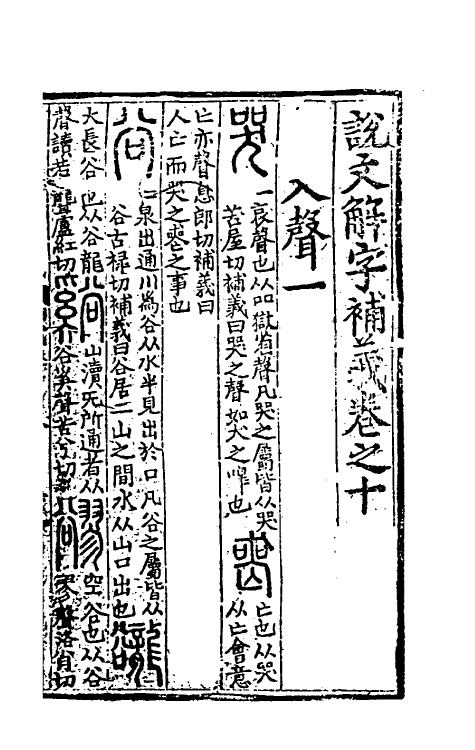 說文解字補義卷之十
入聲一
哭一哀聲也从吅獄省聲凡哭之屬皆从哭
苦屋切補義曰哭之聲如犬之嘷也
喪亡也从哭
从亡會意
亡亦聲息郎切補義曰
人亡而哭之喪之事也
谷二泉出通川為谷从水半見出於口凡谷之屬皆从
谷古祿切補義曰谷居二山之間水从山口出也
大長谷也从谷龍
聲讀若聾盧紅切
山瀆无所通者从
谷奚聲苦兮切
空谷也从谷
聲洛蕭切